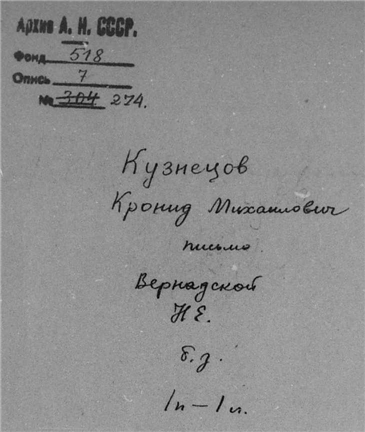 Архив А. Н. СССР.
Фонд 518
Опись 7
№ 304 274.
Кузнецов
Кронид Михайлович
письмо
Вернадской
Н Е.
б. г.
1 п – 1 л.